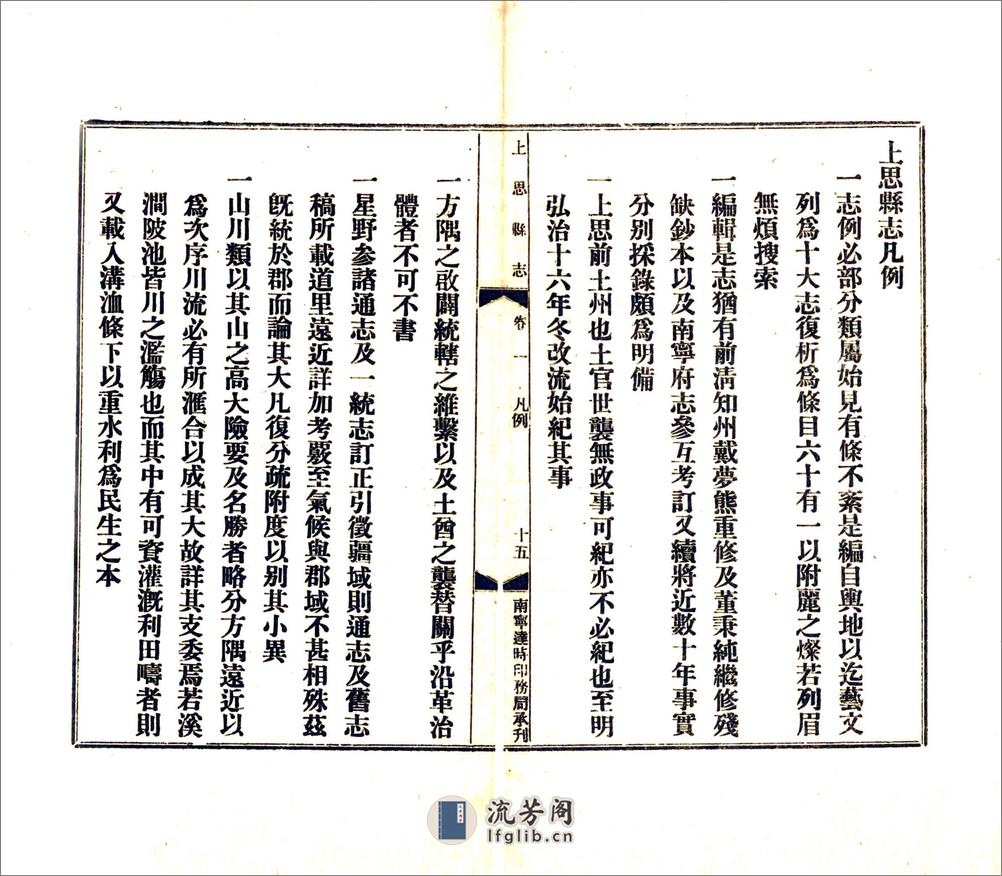 上思縣志凡例
一志例必部分類屬始見有條不紊是編自輿地以迄藝文
列爲十大志復析爲條目六十有一以附麗之燦若列眉
無煩搜索
一編輯是志猶有前淸知州戴夢熊重修及董秉純繼修殘
缺鈔本以及南寧府志參互考訂又續將近數十年事實
分別採錄頗爲明備
一上思前土州也土官世襲無政事可紀亦不必紀也至明
弘治十六年冬改流始紀其事
上思縣志
卷一
凡例
十五
南寧達時印務局承刊
一方隅之啟闢統轄之維繫以及土酋之襲替關乎沿革治
體者不可不書
一星野參諸通志及一統志訂正引徵疆域則通志及舊志
稿所載道里遠近詳加考覈至氣候與郡域不甚相殊茲
旣統於郡而論其大凡復分疏附度以別其小異
一山川類以其山之高大險要及名勝者略分方隅遠近以
爲次序川流必有所滙合以成其大故詳其支委焉若溪
澗陂池皆川之濫觴也而其中有可資灌漑利田疇者則
又載入溝洫條下以重水利爲民生之本
流芳阁
lfglib.cn